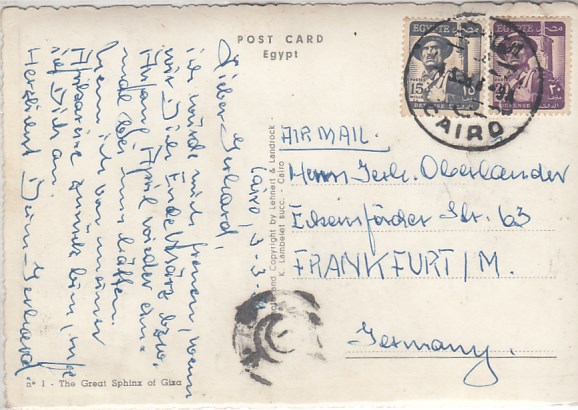 POST CARD
Egypt
EGYPTE
15
DEFENSE
EGYPTE
٣٠
DEFENSE
CAIRO
Cairo, 3-3-
Lieber Gerhard,
ich würde mich freuen, wenn
wir Dich Ende März bzw.
Anfang April wieder ein-
mal bei uns hätten.
Wenn ich von meiner
zurück bin, rufe
ich Dich an.
Herzlichst Dein Gerhard
AIR MAIL.
Herrn Gerh. Oberländer
Str. 63
FRANKFURT/M.
Germany.
and Copyright by Lehnert & Landrock -
K. Lambelet succ. - Cairo
n° 1 - The Great Sphinx of Giza